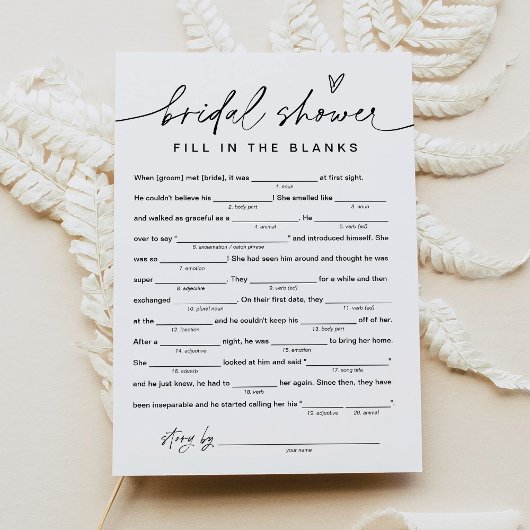 bridal shower
FILL IN THE BLANKS
When [groom] met [bride], it was ____________ at first sight.
1. noun
He couldn't believe his ____________! She smelled like ____________
2. body part 3. noun
and walked as graceful as a ____________. He ____________
4. animal 5. verb (ed)
over to say "____________" and introduced himself. She
6. exclamation / catch phrase
was so ____________! She had seen him around and thought he was
7. emotion
super ____________. They ____________ for a while and then
8. adjective 9. verb (ed)
exchanged ____________. On their first date, they ____________
10. plural noun 11. verb (ed)
at the ____________ and he couldn't keep his ____________ off of her.
12. location 13. body part
After a ____________ night, he was ____________ to bring her home.
14. adjective 15. emotion
She ____________ looked at him and said "____________"
16. adverb 17. song title
and he just knew, he had to ____________ her again. Since then, they have
18. verb
been inseparable and he started calling her his "____________ ____________".
19. adjective 20. animal
story by ____________
your name